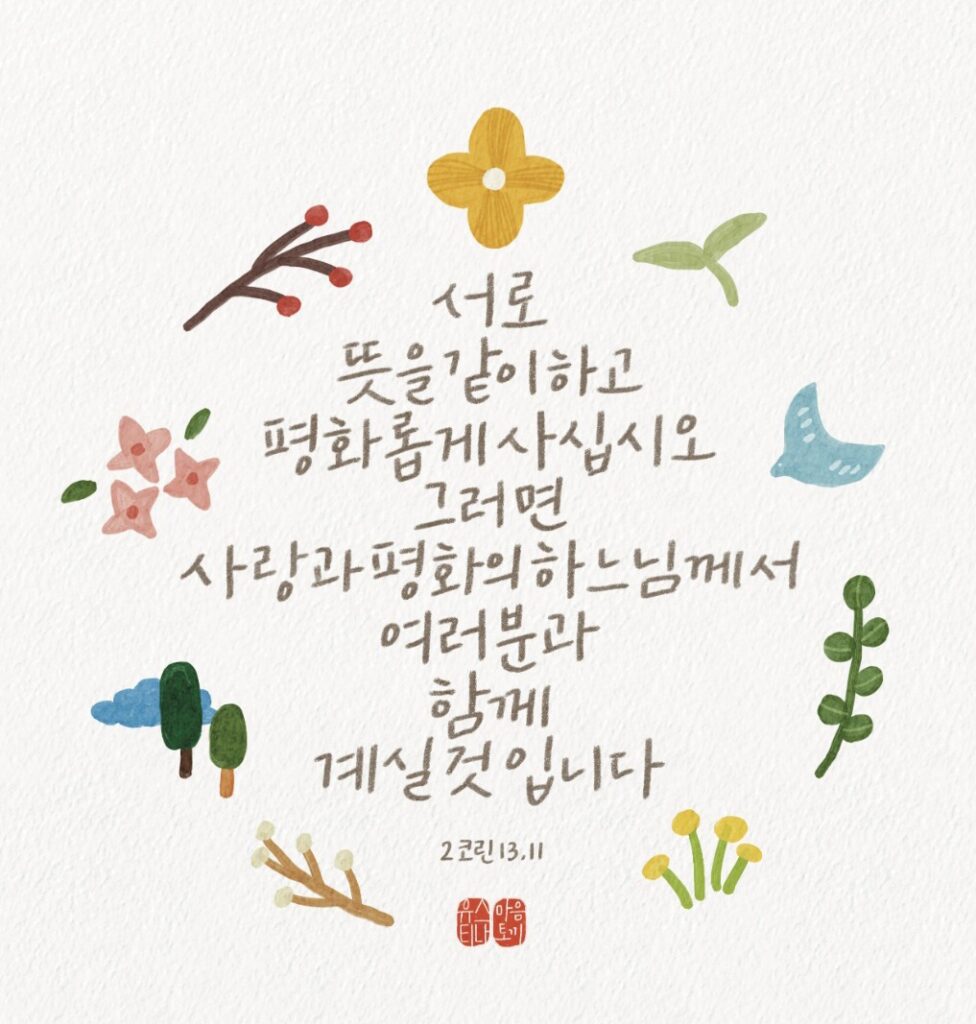 서로
뜻을같이하고
평화롭게사십시오
그러면
사랑과평화의하느님께서
여러분과
함께
계실것입니다
2코린13,11
유스 마음
티나 토끼